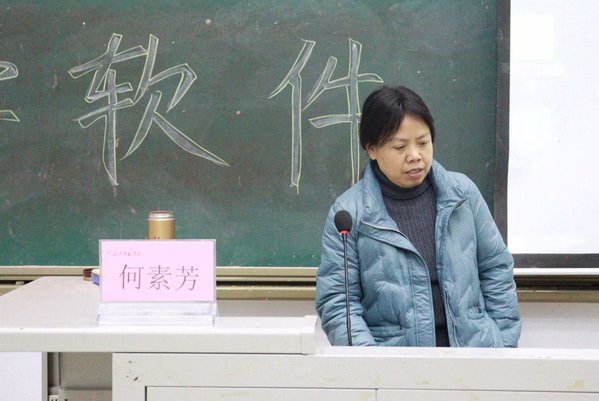 软件
何素芳